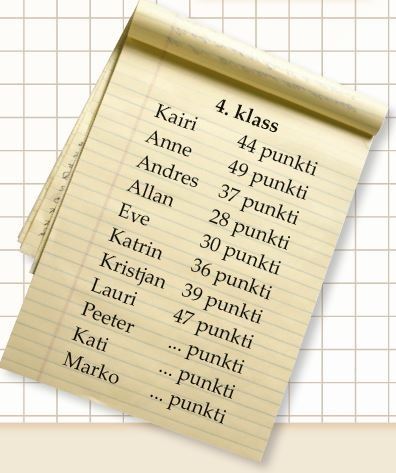 4. klass
Kairi 44 punkti
Anne 49 punkti
Andres 37 punkti
Allan 28 punkti
Eve 30 punkti
Katrin 36 punkti
Kristjan 39 punkti
Lauri 47 punkti
Peeter ... punkti
Kati ... punkti
Marko ... punkti